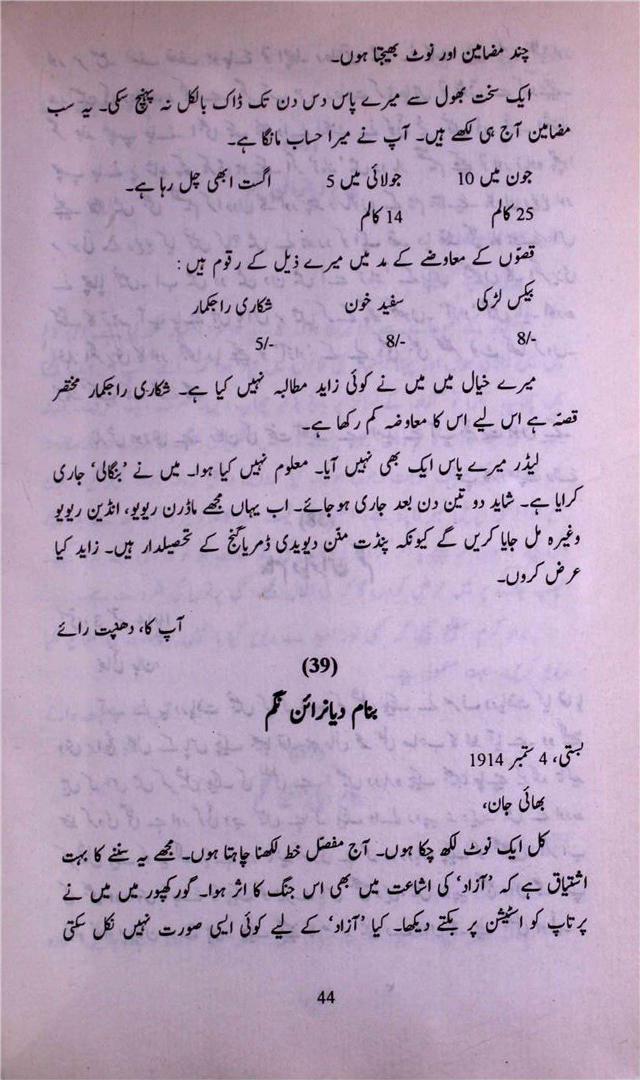 چند مضامین اور نوٹ بھیجتا ہوں۔
ایک سخت بھول سے میرے پاس دس دن تک ڈاک بالکل نہ پہنچ سکی۔ یہ سب
مضامین آج ہی لکھے ہیں۔ آپ نے میرا حساب مانگا ہے۔
جون میں 10 جولائی میں 5 اگست ابھی چل رہا ہے۔
25 کالم 14 کالم
قصّوں کے معاوضے کے مد میں میرے ذیل کے رقوم ہیں :
بیکس لڑکی سفید خون شکاری راجکمار
8/- 8/- 5/-
میرے خیال میں میں نے کوئی زاید مطالبہ نہیں کیا ہے۔ شکاری راجکمار مختصر
قصّہ ہے اس لیے اس کا معاوضہ کم رکھا ہے۔
لیڈر میرے پاس ایک بھی نہیں آیا۔ معلوم نہیں کیا ہوا۔ میں نے ’بنگالی‘ جاری
کرایا ہے۔ شاید دو تین دن بعد جاری ہو جائے۔ اب یہاں مجھے ماڈرن ریویو، انڈین ریویو
وغیرہ مل جایا کریں گے کیونکہ پنڈت منّن دیویدی ڈمریاگنج کے تحصیلدار ہیں۔ زاید کیا
عرض کروں۔
آپ کا، دھنپت رائے
(39)
بنام دیا نرائن نگم
بستی، 4 ستمبر 1914
بھائی جان،
کل ایک نوٹ لکھ چکا ہوں۔ آج مفصّل خط لکھنا چاہتا ہوں۔ مجھے یہ سننے کا بہت
اشتیاق ہے کہ ’آزاد‘ کی اشاعت میں بھی اس جنگ کا اثر ہوا۔ گورکھپور میں میں نے
پرتاپ کو اسٹیشن پر بکتے دیکھا۔ کیا ’آزاد‘ کے لیے کوئی ایسی صورت نہیں نکل سکتی
44